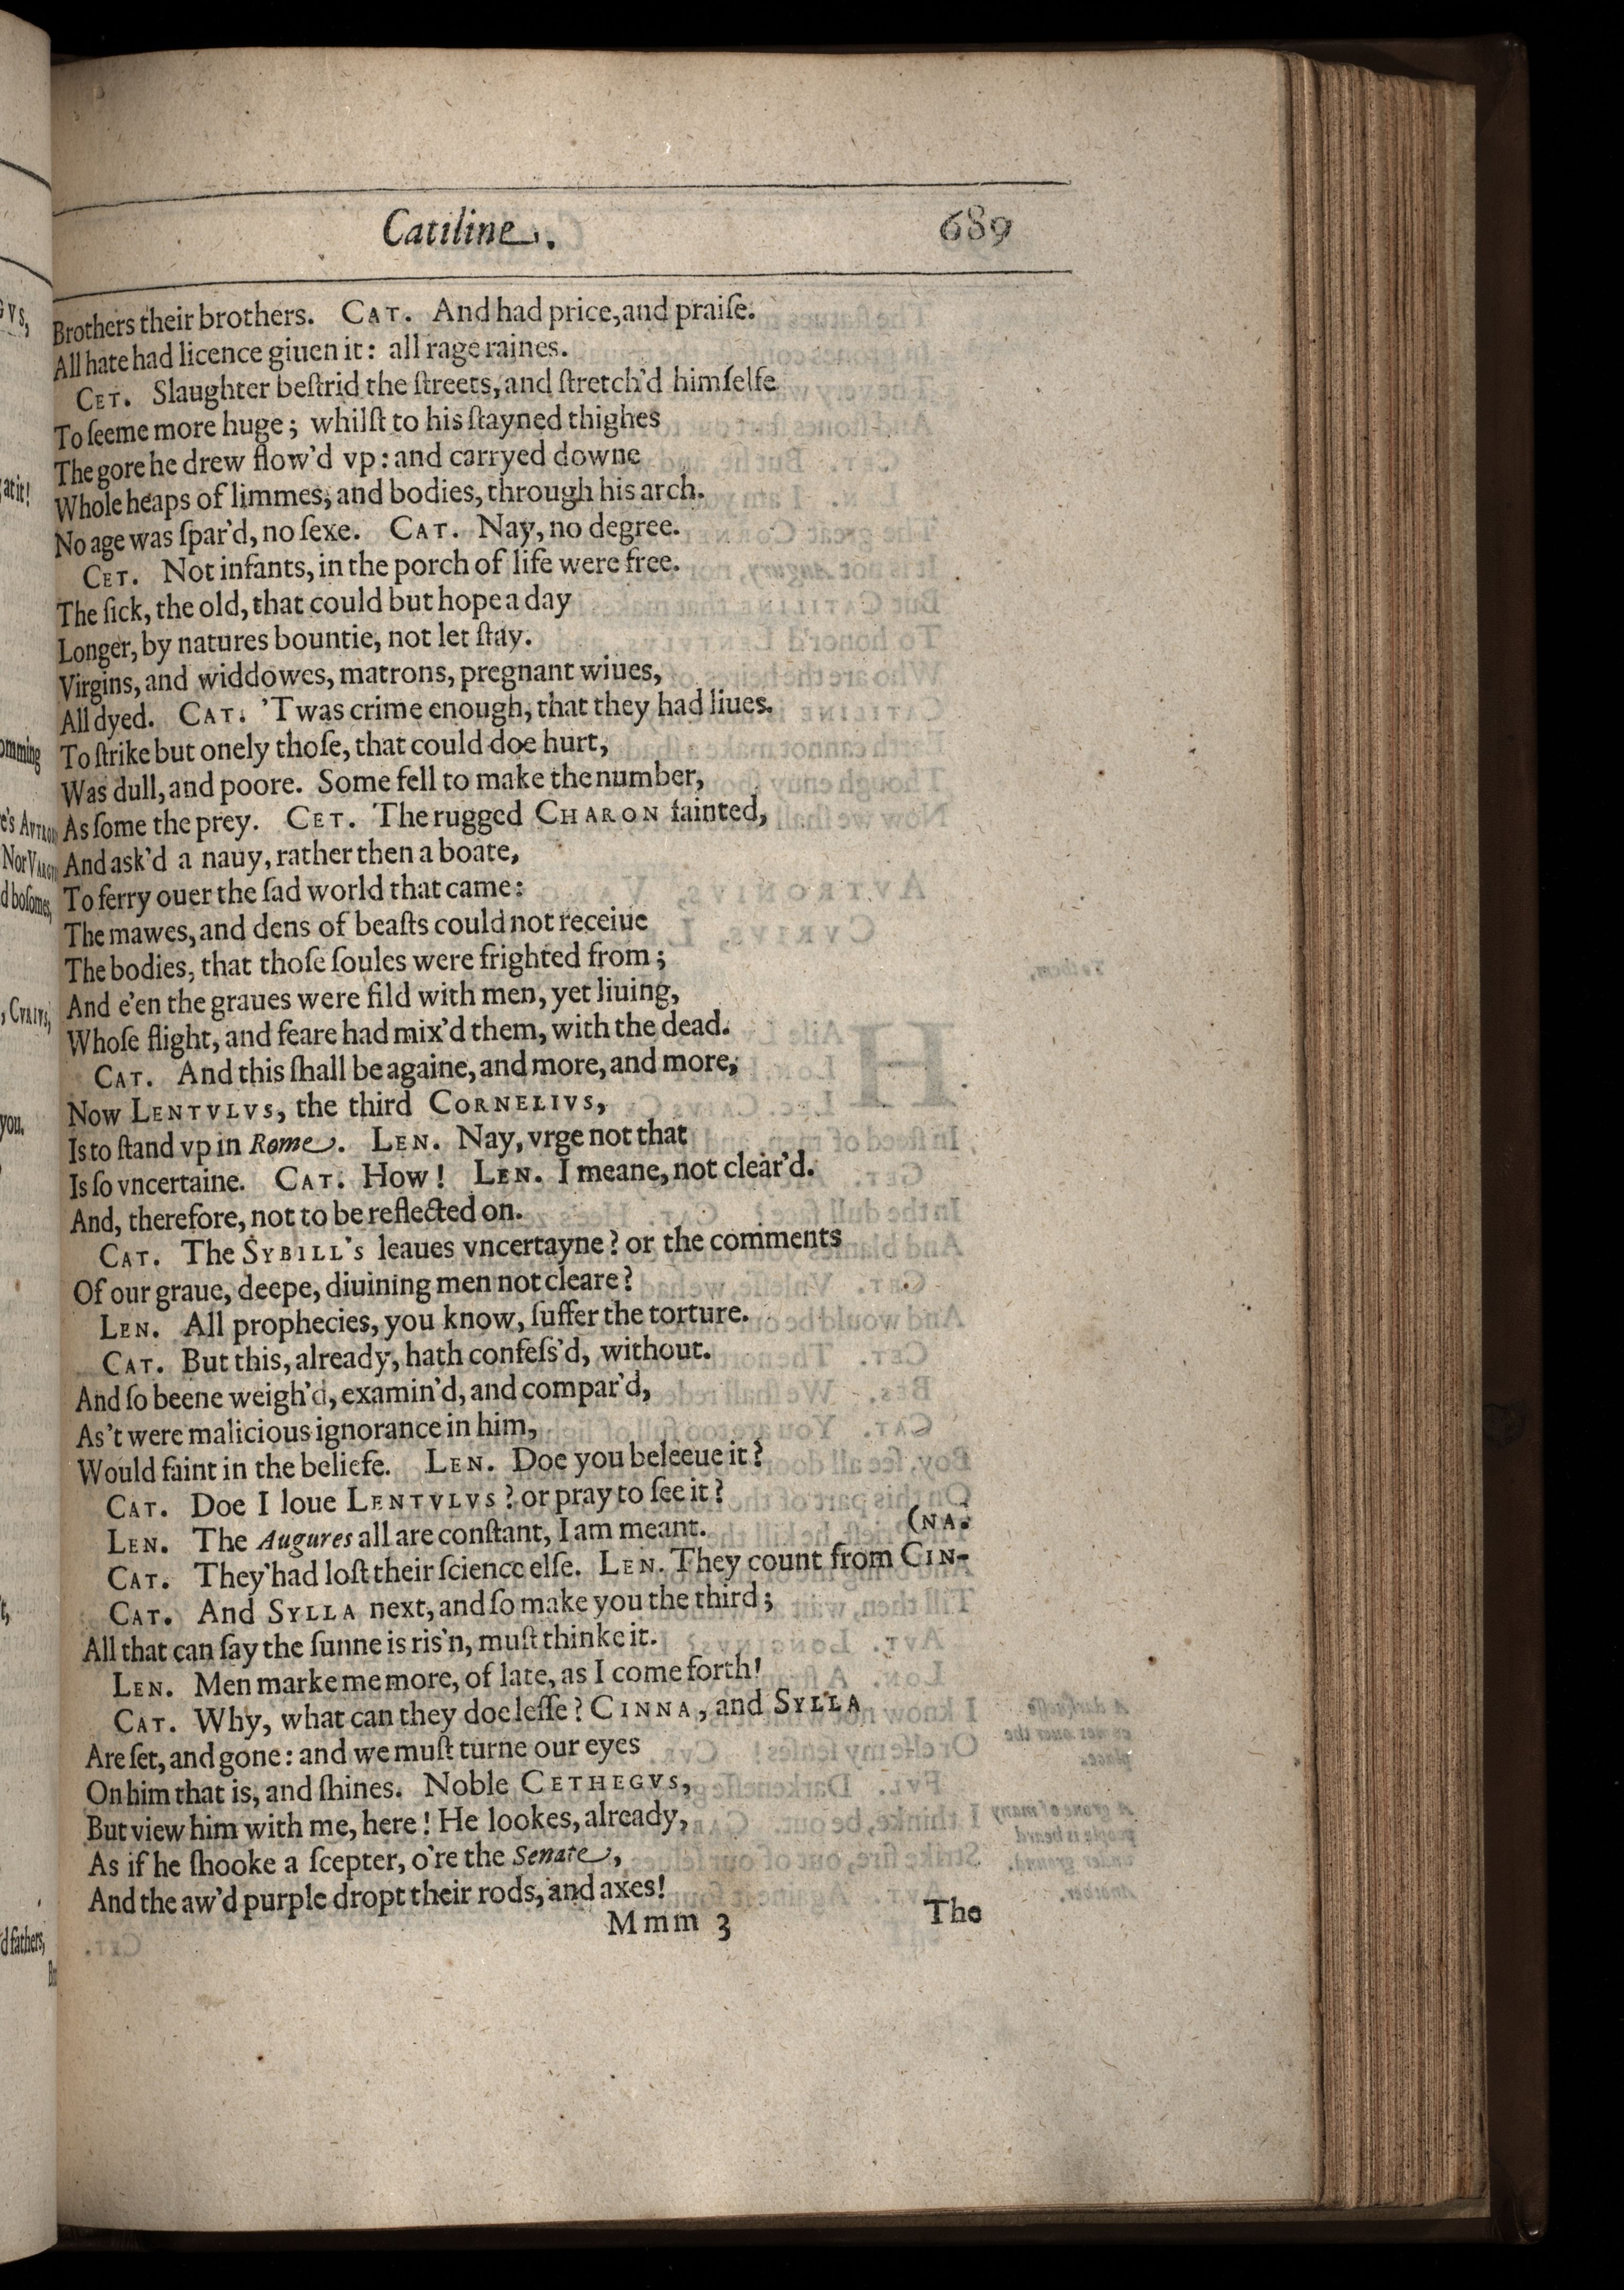 Catiline. 689
Brothers their brothers. CAT. And had price, and praiſe.
All hate had licence giuen it: all rage raines.
CET. Slaughter beſtrid the ſtreets, and ſtretch'd himſelfe
To ſeeme more huge; whilſt to his ſtayned thighes
The gore he drew flow'd vp: and carryed downe
Whole heaps of limmes, and bodies, through his arch.
No age was ſpar'd, no ſexe. CAT. Nay, no degree.
CET. Not infants, in the porch of life were free.
The ſick, the old, that could but hope a day
Longer, by natures bountie, not let ſtay.
Virgins, and widdowes, matrons, pregnant wiues,
All dyed. CAT. 'Twas crime enough, that they had liues.
To ſtrike but onely thoſe, that could doe hurt,
Was dull, and poore. Some fell to make the number,
As ſome the prey. CET. The rugged CHARON fainted,
And ask'd a nauy, rather then a boate,
To ferry ouer the ſad world that came:
The mawes, and dens of beaſts could not receiue
The bodies, that thoſe ſoules were frighted from;
And e'en the graues were fild with men, yet liuing,
Whoſe flight, and feare had mix'd them, with the dead.
CAT. And this ſhall be againe, and more, and more,
Now LENTVLVS, the third CORNELIVS,
Is to ſtand vp in Rome. LEN. Nay, vrge not that
Is ſo vncertaine. CAT. How! LEN. I meane, not clear'd.
And, therefore, not to be reflected on.
CAT. The SYBILL'S leaues vncertayne? or the comments
Of our graue, deepe, diuining men not cleare?
LEN. All prophecies, you know, ſuffer the torture.
CAT. But this, already, hath confeſs'd, without.
And ſo beene weigh'd, examin'd, and compar'd,
As't were malicious ignorance in him,
Would faint in the beliefe. LEN. Doe you beleeue it?
CAT. Doe I loue LENTVLVS? or pray to ſee it?
LEN. The Augures all are conſtant, I am meant. (NA.
CAT. They'had loſt their ſcience elſe. LEN. They count from CIN-
CAT. And SYLLA next, and ſo make you the third;
All that can ſay the ſunne is ris'n, muſt thinke it.
LEN. Men marke me more, of late, as I come forth!
CAT. Why, what can they doe leſſe? CINNA, and SYLLA
Are ſet, and gone: and we muſt turne our eyes
On him that is, and ſhines. Noble CETHEGVS,
But view him with me, here! He lookes, already,
As if he ſhooke a ſcepter, o're the Senate,
And the aw'd purple dropt their rods, and axes!
Mmm 3 The